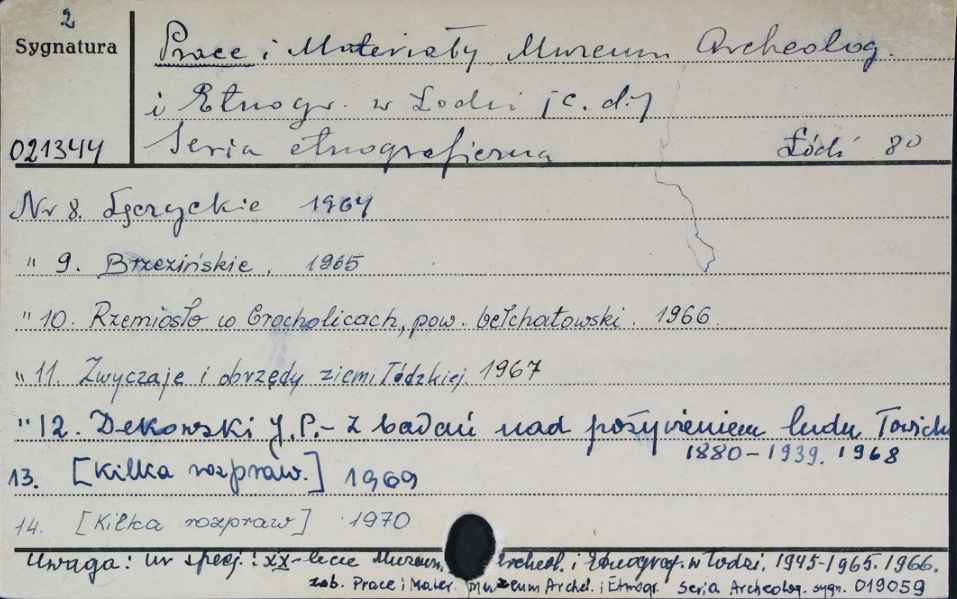 2
Sygnatura
Prace i Materiały Muzeum Archeolog.
i Etnogr. w Łodzi [c. d.]
021344
Seria etnograficzna Łódź 80
Nr 8. Łęczyckie 1964
" 9. Brzezińskie, 1965
" 10. Rzemiosło w Grocholicach, pow. bełchatowski. 1966.
" 11. Zwyczaje i obrzędy ziemi łódzkiej. 1967
" 12. Dekowski J. P. - Z badań nad pożywieniem ludu Łowick
1880-1939. 1968
13. [Kilka rozpraw.] 1969
14. [Kilka rozpraw] 1970
Uwaga: nr specj.: XX-lecie Muzeum Archeol. i Etnograf. w Łodzi. 1945-1965. 1966.
zob. Prace i Mater. Muzeum Archeol. i Etnogr. Seria Archeolog. sygn. 019059